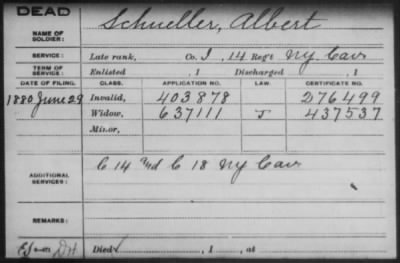 DEAD
NAME OF SOLDIER: Schueller, Albert
SERVICE: Late rank, Co. I, 14 Reg't NY Cav
TERM OF SERVICE: Enlisted , 1 Discharged , 1
DATE OF FILING. CLASS. APPLICATION NO. LAW. CERTIFICATE NO.
1880 June 29 Invalid, 403878 276499
Widow, 637111 J 437537
Minor,
ADDITIONAL SERVICES: C 14 C 18 NY Cav
REMARKS:
Died , 1 , at